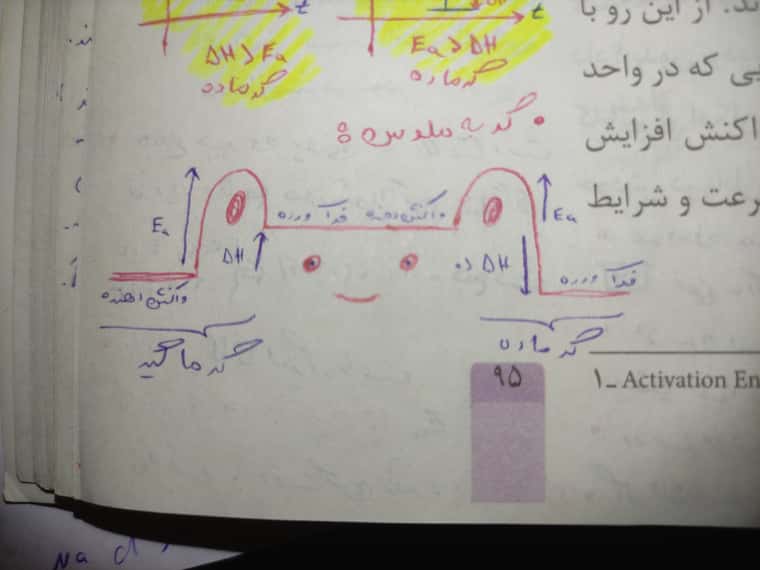 t
t
ΔH > Ea
گرماده
Ea > ΔH
گرماده
ند. از این رو با
یی که در واحد
اکنش افزایش
رعت و شرایط
• گربه ملوس:
Ea
ΔH
فرآورده
واکنش دهنده
ΔH
Ea
واکنش دهنده
فرآورده
گرماگیر
گرماده
۹۵
۱ـ Activation En
Na